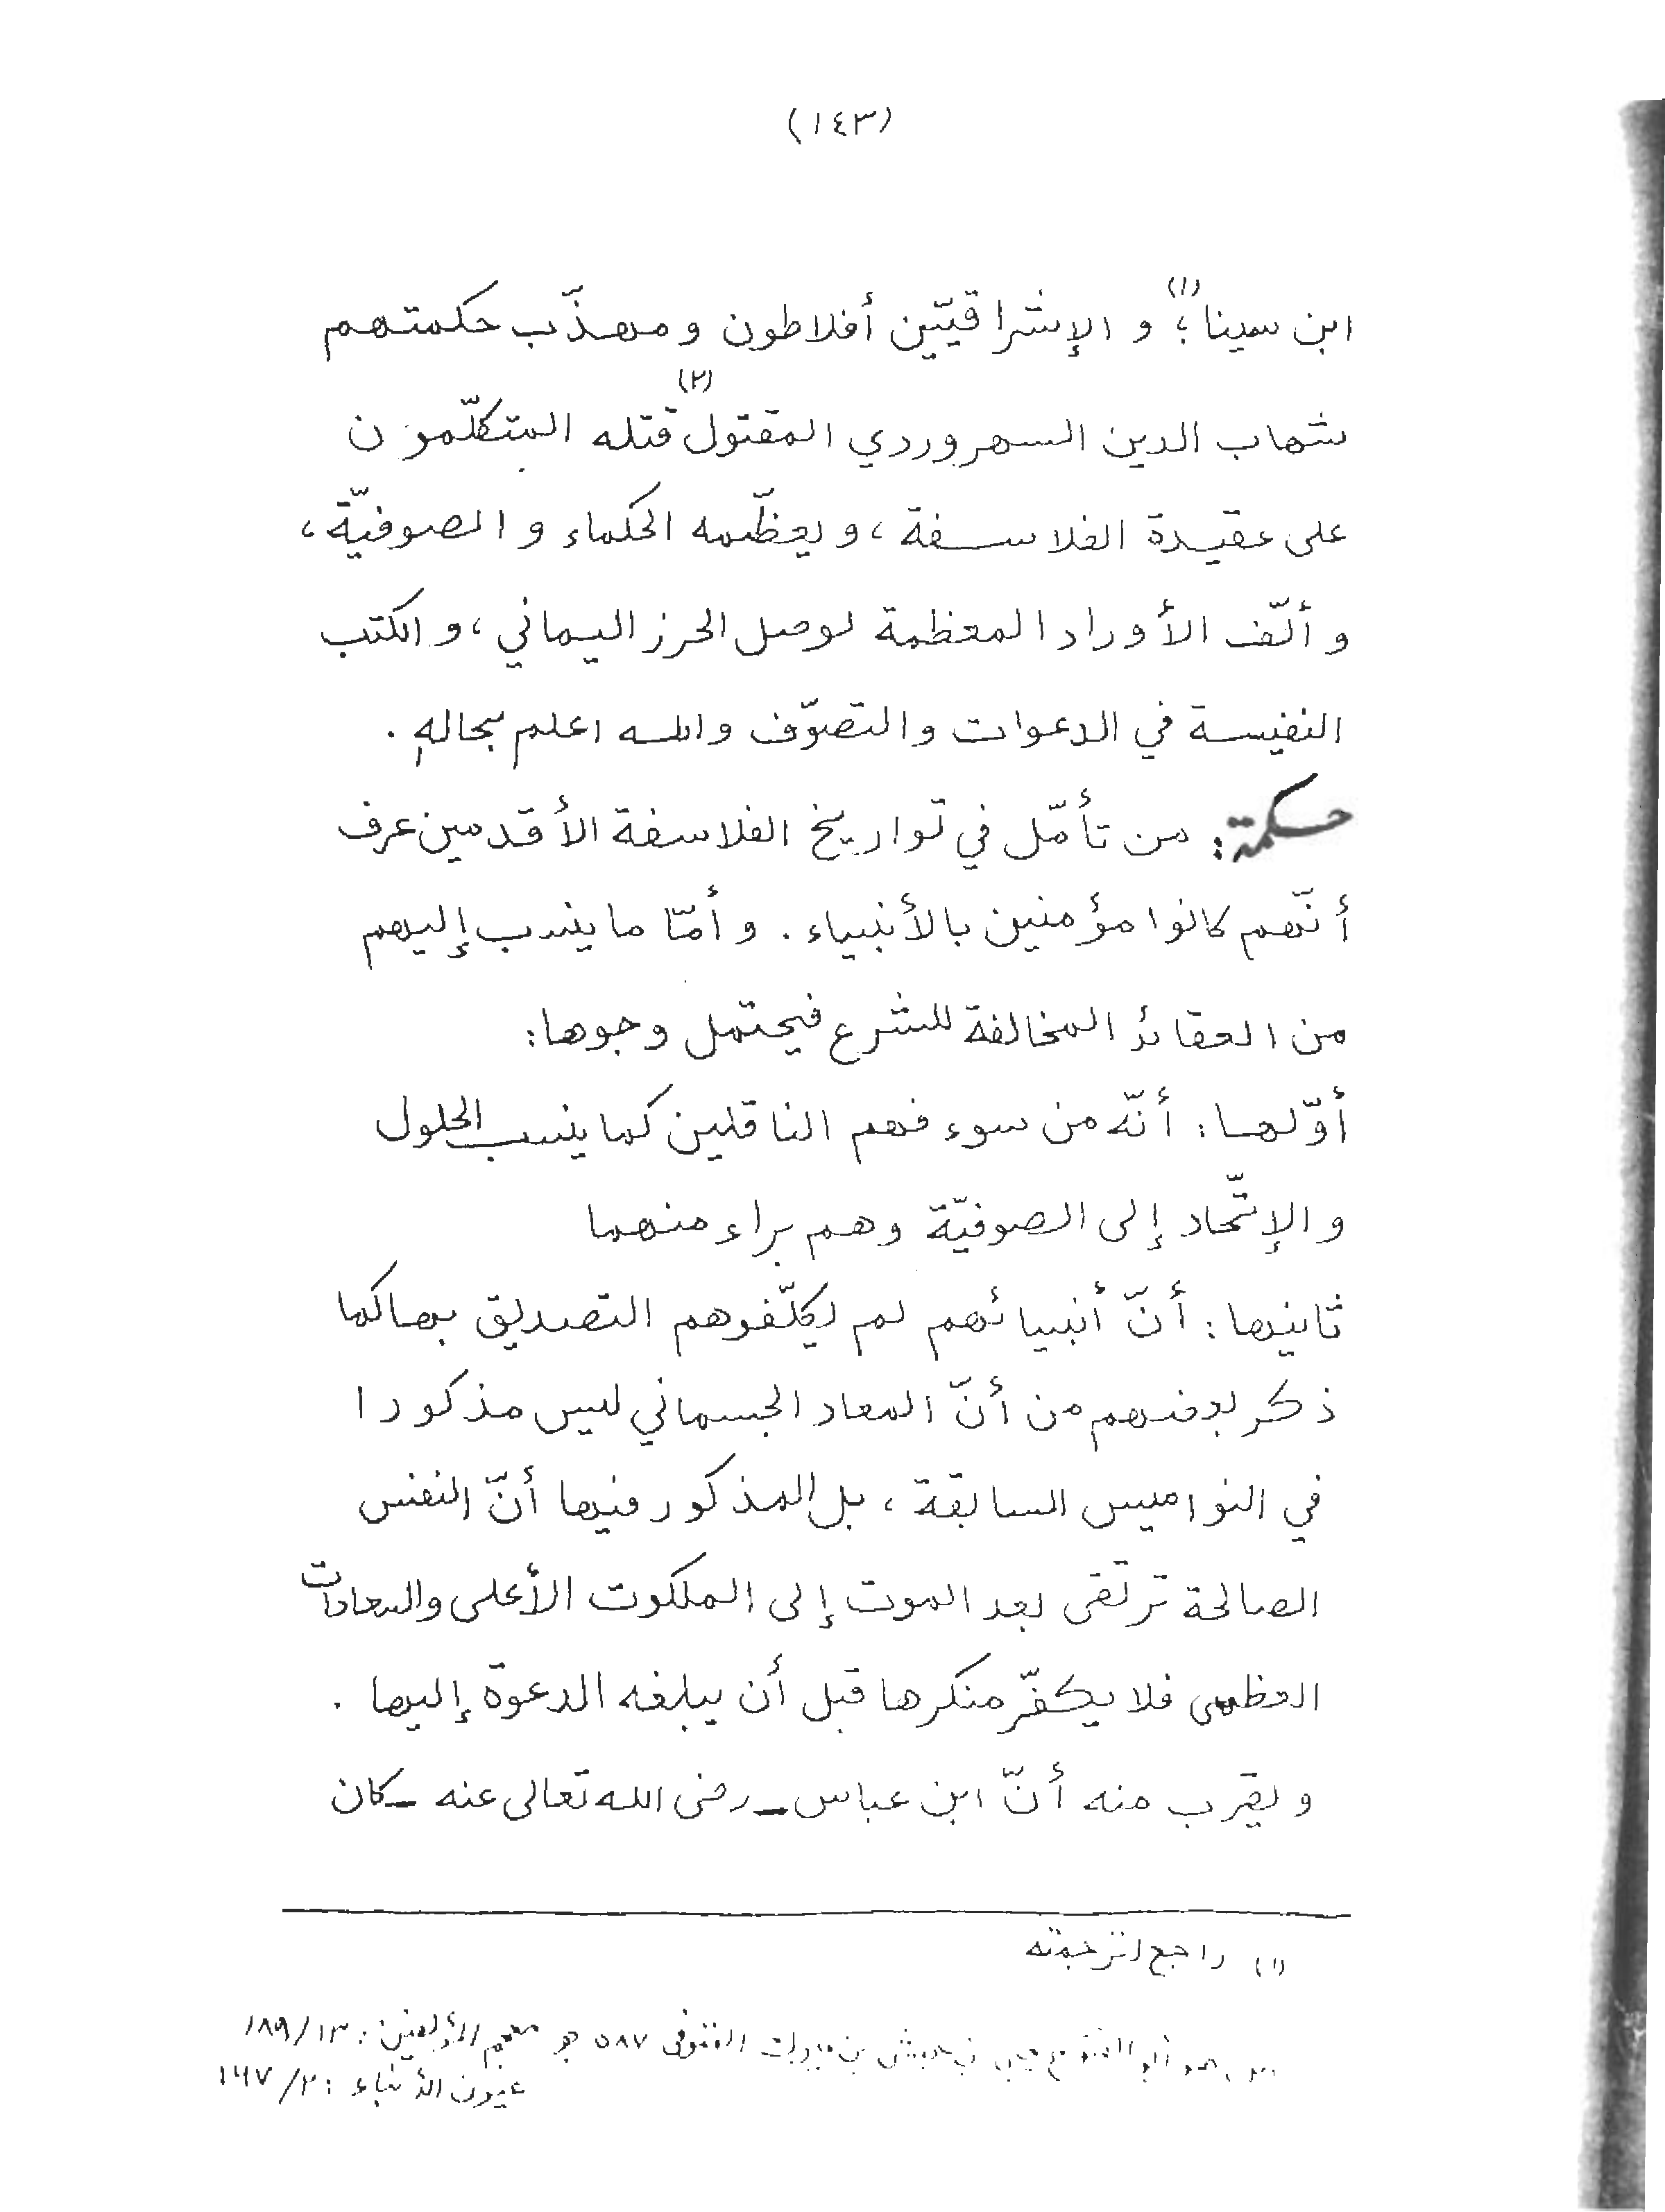 (١٤٣)
ابن سينا(١)؛ و الإشراقيّين أفلاطون و مهذّب حكمتهم
شهاب الدين السهروردي المقتول(٢) قتله المتكلّمون
على عقيدة الفلاسفة، و يعظّمه الحكماء و الصوفيّة،
و ألّف الأوراد المعظمة لوصل الحرز اليماني، و الكتب
النفيسة في الدعوات و التصوّف والله اعلم بحاله .
حكمة: من تأمّل في تواريخ الفلاسفة الأقدمين عرف
أنّهم كانوا مؤمنين بالأنبياء . و أمّا ما ينسب إليهم
من العقائد المخالفة للشرع فيحتمل وجوها:
أوّلها: أنّه من سوء فهم الناقلين كما ينسب الحلول
و الإتّحاد إلى الصوفيّة وهم براء منهما
ثانيها: أنّ أنبيائهم لم يكلّفوهم التصديق بها كما
ذكر بعضهم من أنّ المعاد الجسماني ليس مذكورا
في النواميس السابقة، بل المذكور فيها أنّ النفس
الصالحة ترتقى بعد الموت إلى الملكوت الأعلى والسعادات
العظمى فلا يكفّر منكرها قبل أن يبلغه الدعوة إليها .
و يقرب منه أنّ ابن عباس ـ رضى الله تعالى عنه ـ كان
(١) راجع لترجمته
هو أبو الفتوح يحيى بن حبش بن المتوفى ٥٨٧ هـ معجم المؤلفين: ١٣/١٨٩
عيون الأنباء: ٢/١٦٧